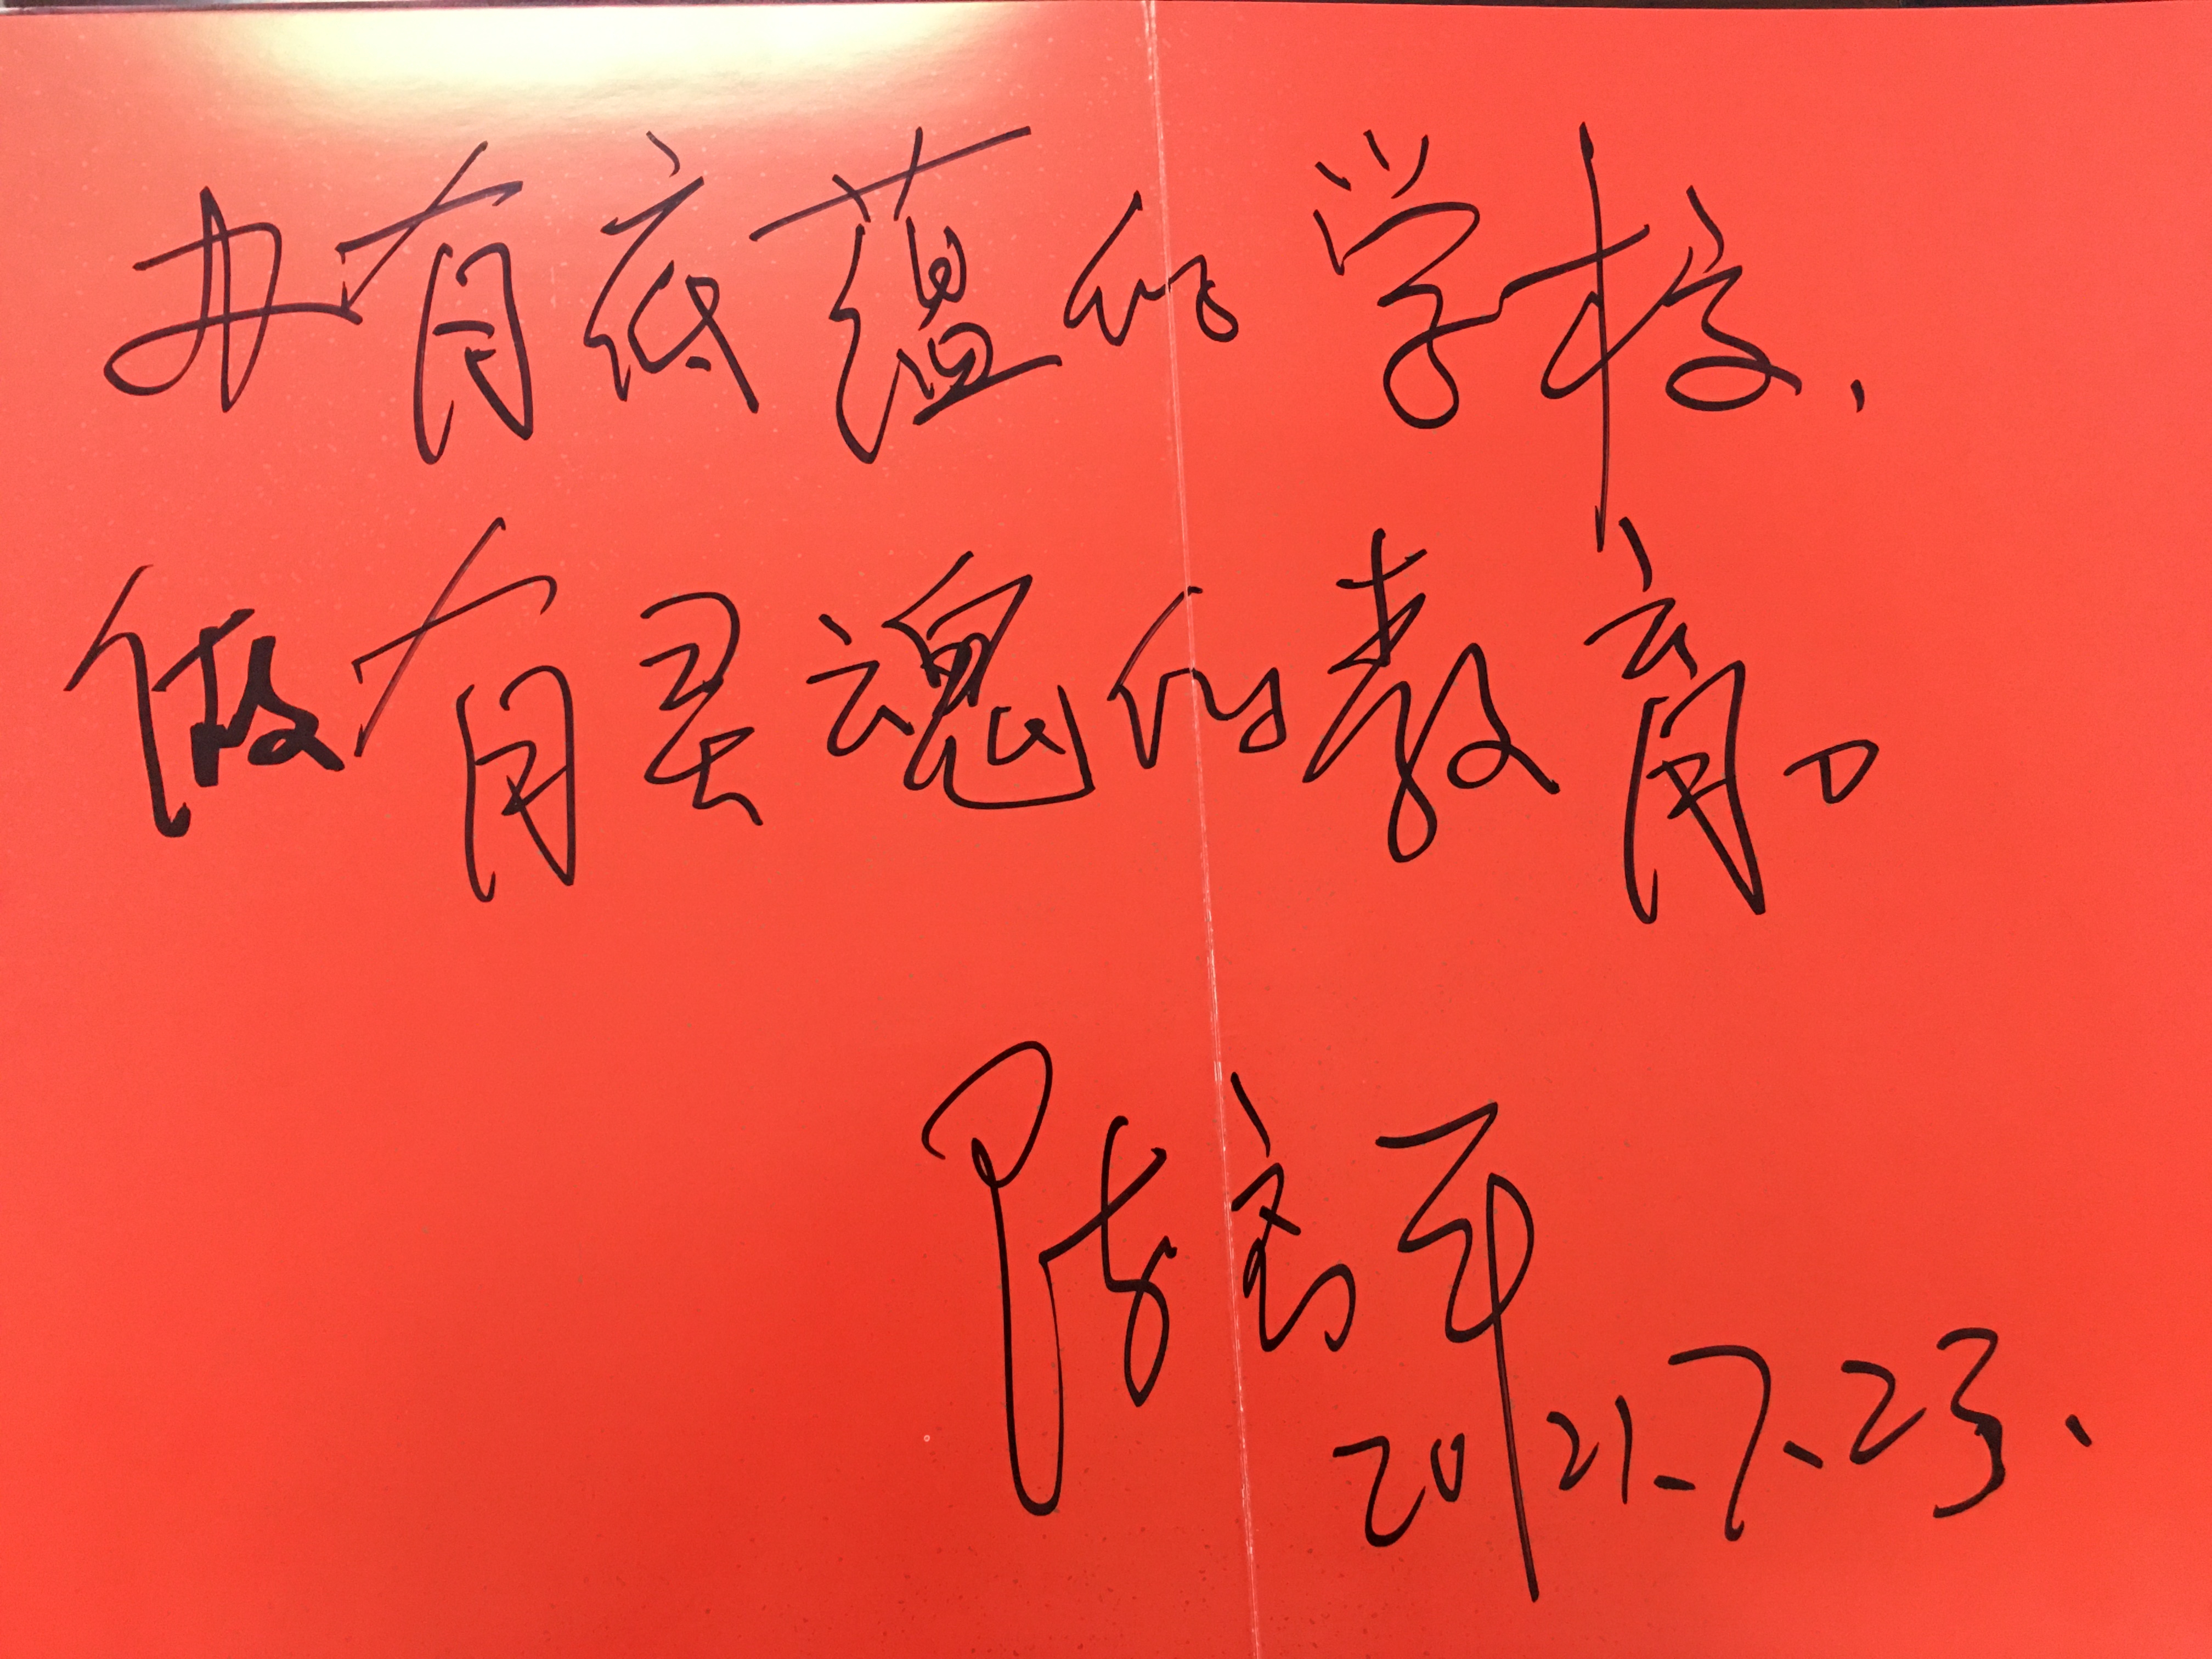 办有底蕴的学校,
做有灵魂的教育。
陈
2021-7-23.